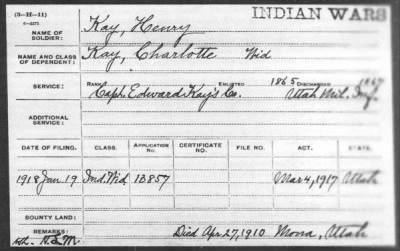 (3-H-11) INDIAN WARS
6-4271
NAME OF SOLDIER: Kay, Henry
NAME AND CLASS OF DEPENDENT: Kay, Charlotte Wid
RANK ENLISTED 1865 DISCHARGED 1867
SERVICE: Capt. Edward Kay's Co. Utah Mil. Inf.
ADDITIONAL SERVICE:
DATE OF FILING. CLASS. APPLICATION NO. CERTIFICATE NO. FILE NO. ACT. STATE.
1918 Jan. 19 Ind. Wid. 13857 Mar 4, 1917 Utah
BOUNTY LAND:
REMARKS: Died Apr 27, 1910 Mona, Utah